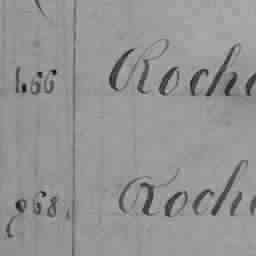 166 Roch
968. Roch